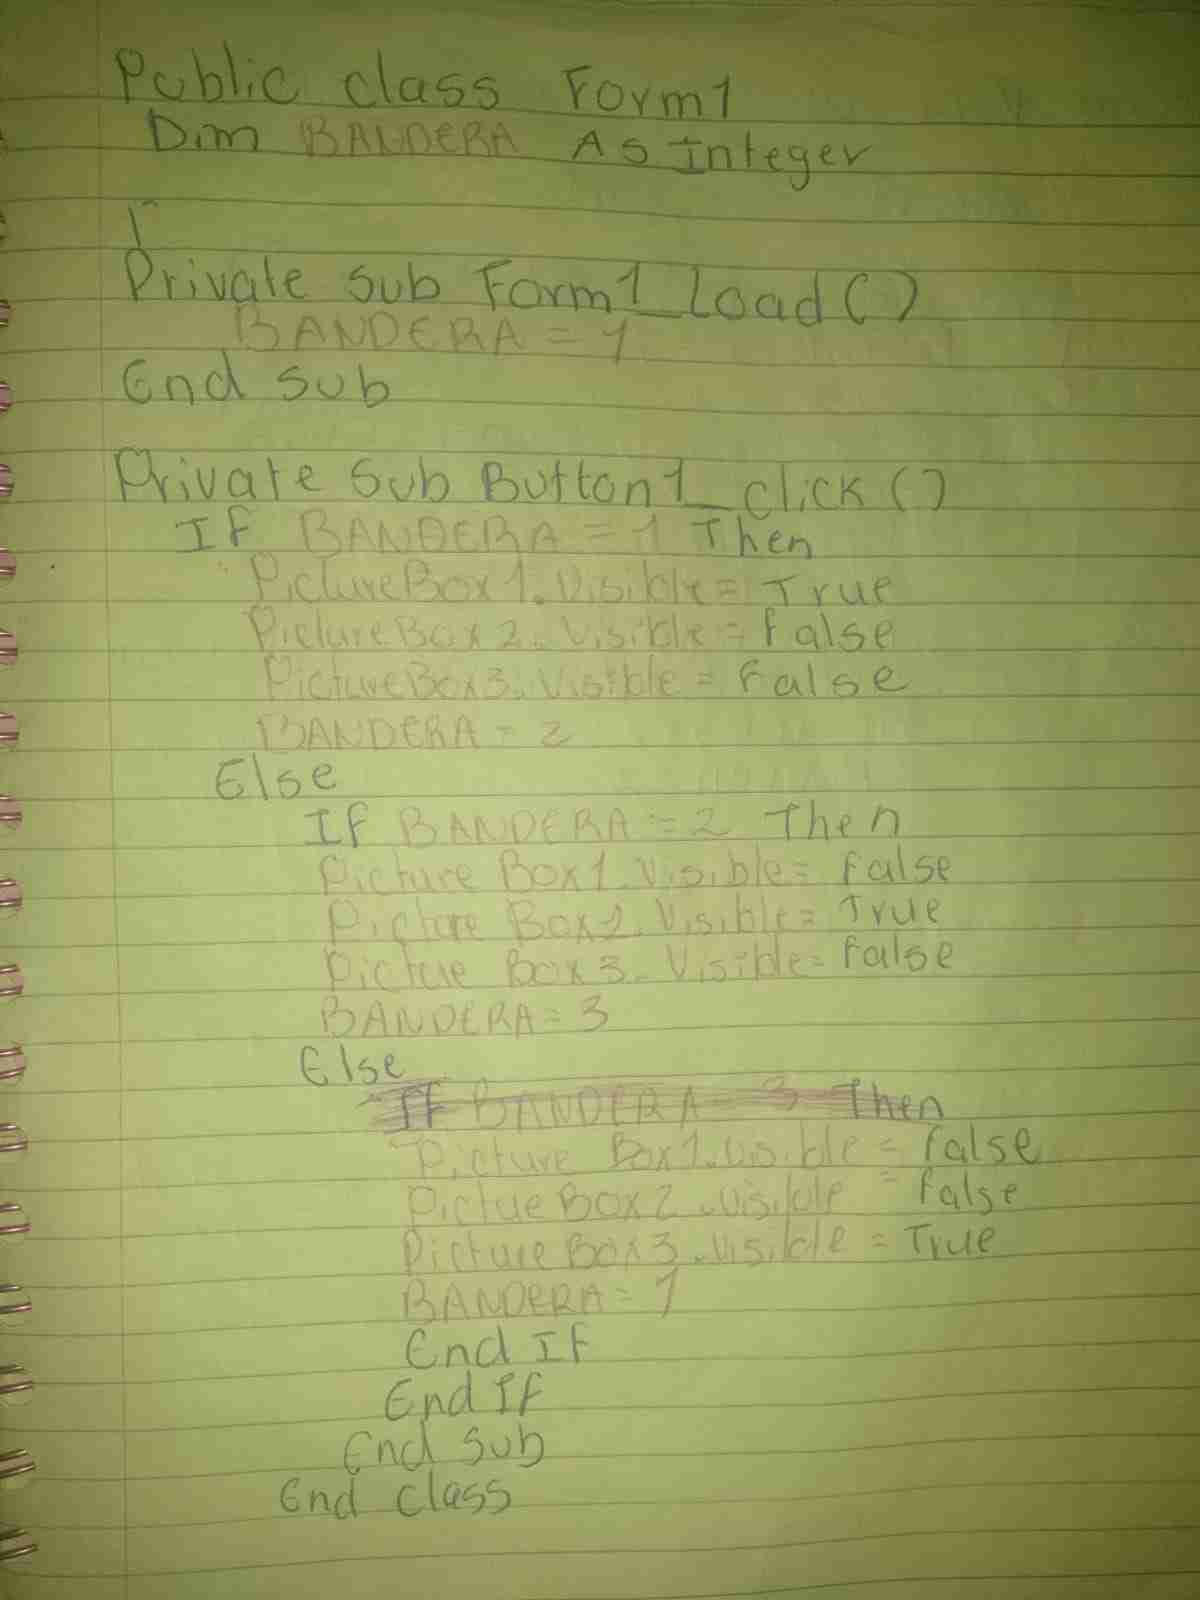 Public class Form1
Dim BANDERA As Integer
Private sub Form1_Load()
BANDERA = 1
End sub
Private sub Button1_click()
If BANDERA = 1 Then
PictureBox1.Visible = True
PictureBox2.Visible = false
PictureBox3.Visible = false
BANDERA = 2
Else
If BANDERA = 2 Then
Picture Box1.Visible = false
Picture Box2.Visible = True
Pictue Box3.Visible = false
BANDERA = 3
Else
If BANDERA = 3 Then
Picture Box1.visible = false
Pictue Box2.visible = false
Picture Box3.visible = True
BANDERA = 1
End If
End If
End sub
End class